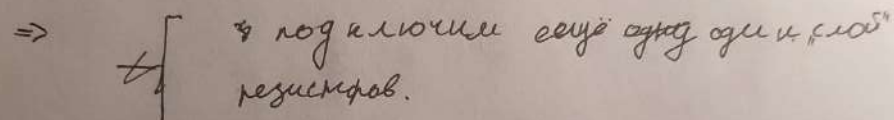 => подключим ещё один „слой"
резистров.